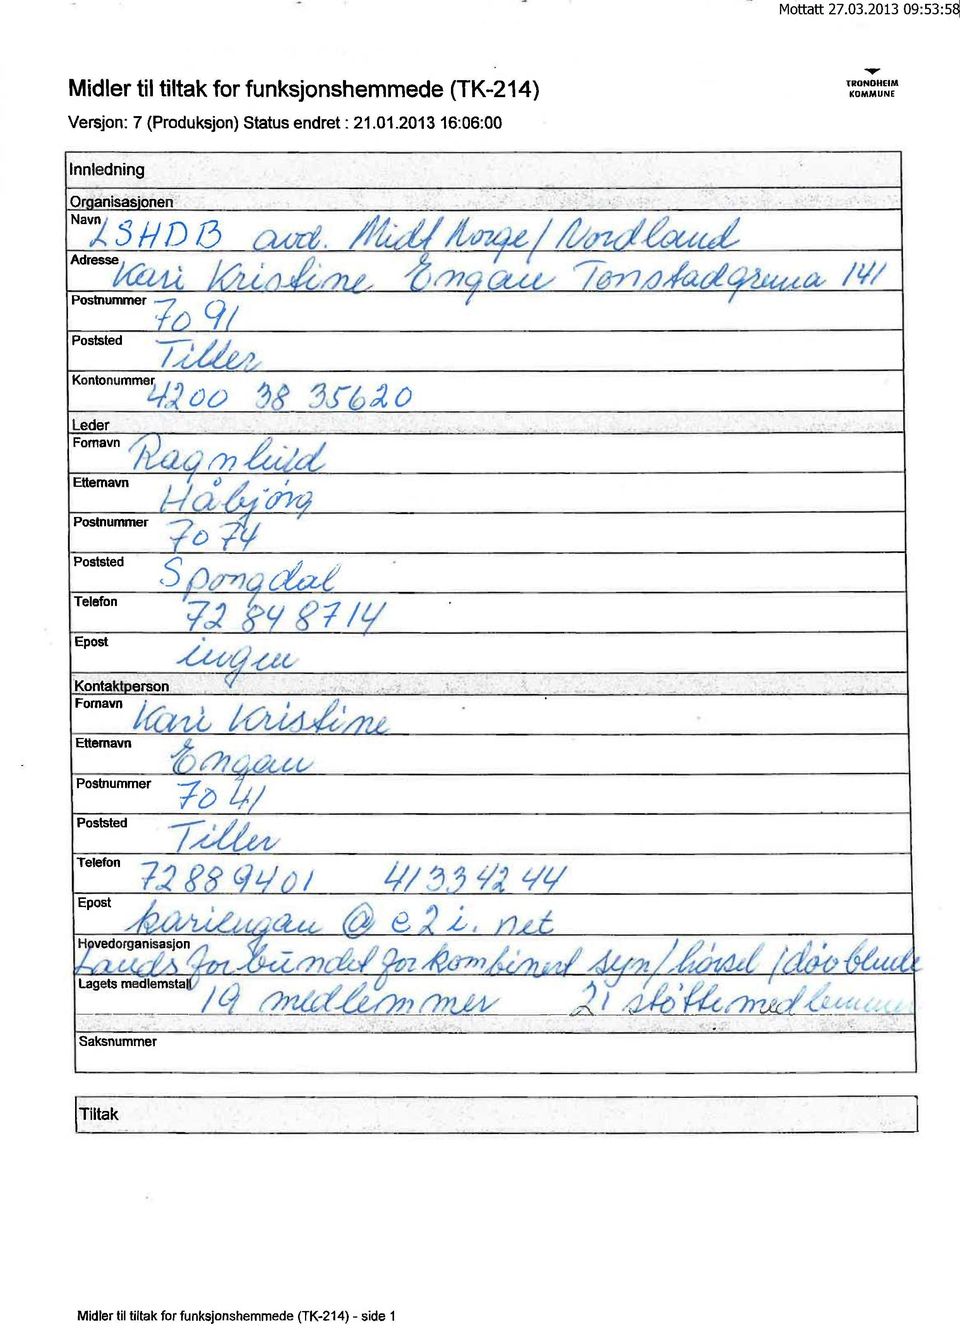 Mottatt 27.03.2013 09:53:58
Midler til tiltak for funksjonshemmede (TK-214)
TRONDHEIM
KOMMUNE
Versjon: 7 (Produksjon) Status endret : 21.01.2013 16:06:00
Innledning
Organisasjonen
Navn LSHDB avd. Midt Norge / Nordland
Adresse Kari Kristine Engan Tonstadgrenda 141
Postnummer 7091
Poststed Tiller
Kontonummer 4200 38 35620
Leder
Fornavn Ragnhild
Etternavn Håbjørg
Postnummer 7074
Poststed Spongdal
Telefon 72 84 87 14
Epost ingen
Kontaktperson
Fornavn Kari Kristine
Etternavn Engan
Postnummer 7041
Poststed Tiller
Telefon 72 88 94 01 41 33 42 44
Epost kariengan @ e2i. net
Hovedorganisasjon Landsforbundet for kombinert syn / hørsel / døvblinde
Lagets medlemstall 19 medlemmer 21 støttemedlemmer
Saksnummer
Tiltak
Midler til tiltak for funksjonshemmede (TK-214) - side 1